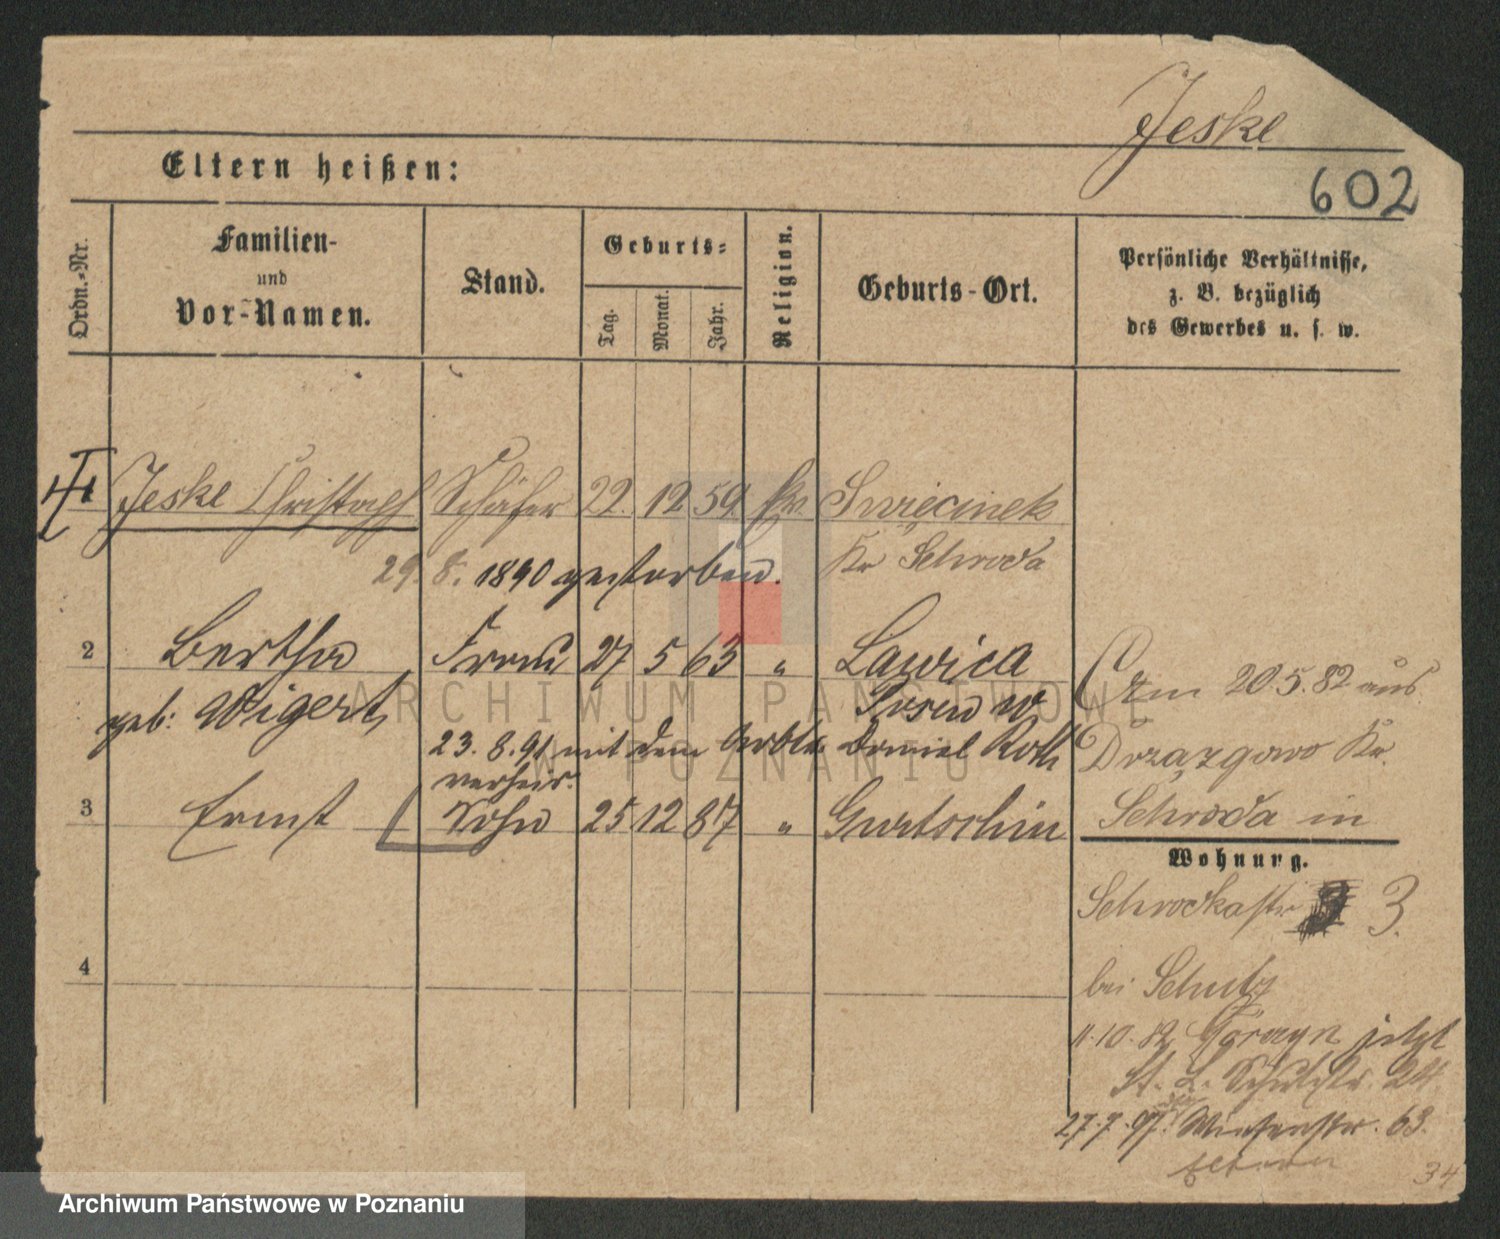 Jeske
602
Eltern heißen:
Ordn.-Nr.
Familien-
und
Vor-Namen.
Stand.
Geburts-
Tag.
Monat.
Jahr.
Religion.
Geburts-Ort.
Persönliche Verhältnisse,
z. B. bezüglich
des Gewerbes u. s. w.
Jeske Christoph Schäfer 22. 12 59. Swięcinek
29. 8. 1890 gestorben. Kr Schroda
2 Bertha Frau 27 5 63 " Lawica
geb: Weigert, Posen W
Am 20.5.82 aus
23.8.91 mit dem Daniel Roth
verheir.
Drzązgowo Kr.
3 Ernst Sohn 25 12 87 " Gurtschin
Schroda in
Wohnung.
Schrodkastr 3.
bei Schulz
4
11.10.82 Górczyn jetzt
St. L. Schulstr. 24
27.7.97. Wiesenstr. 63.
Eltern
34
ARCHIWUM PAŃSTWOWE
W POZNANIU
Archiwum Państwowe w Poznaniu